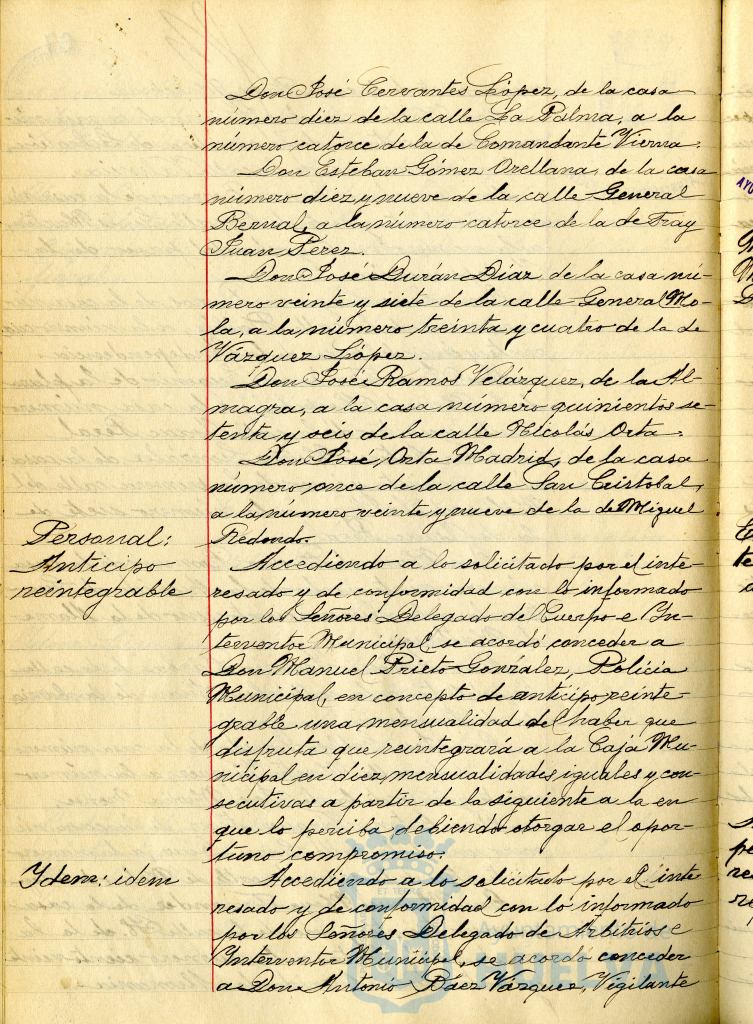 Don José Cervantes López, de la casa
número diez de la calle La Palma, a la
número catorce de la de Comandante Vierna.
Don Esteban Gómez Orellana, de la casa
número diez y nueve de la calle General
Bernal, a la número catorce de la de Fray
Juan Perez.
Don José Durán Díaz de la casa nú-
mero veinte y siete de la calle General Mo-
la, a la número treinta y cuatro de la de
Vázquez López.
Don José Ramos Velázquez, de la Al-
magra, a la casa número quinientos se-
tenta y seis de la calle Nicolás Orta.
Don José Orta Madrid, de la casa
número once de la calle San Cristobal,
a la número veinte y nueve de la de Miguel
Redondo.
Personal:
Anticipo
reintegrable
Accediendo a lo solicitado por el inte-
resado y de conformidad con lo informado
por los Señores Delegado del Cuerpo e In-
terventor Municipal se acordó conceder a
Don Manuel Prieto González, Policía
Municipal, en concepto de anticipo reinte-
grable una mensualidad del haber que
disfruta que reintegrará a la Caja Mu-
nicipal en diez mensualidades iguales y con-
secutivas a partir de la siguiente a la en
que lo perciba debiendo otorgar el opor-
tuno compromiso.
Ydem: idem
Accediendo a lo solicitado por el inte
resado y de conformidad con lo informado
por los Señores Delegado de Arbitrios e
Interventor Municipal, se acordó conceder
a Don Antonio Báez Vázquez, Vigilante